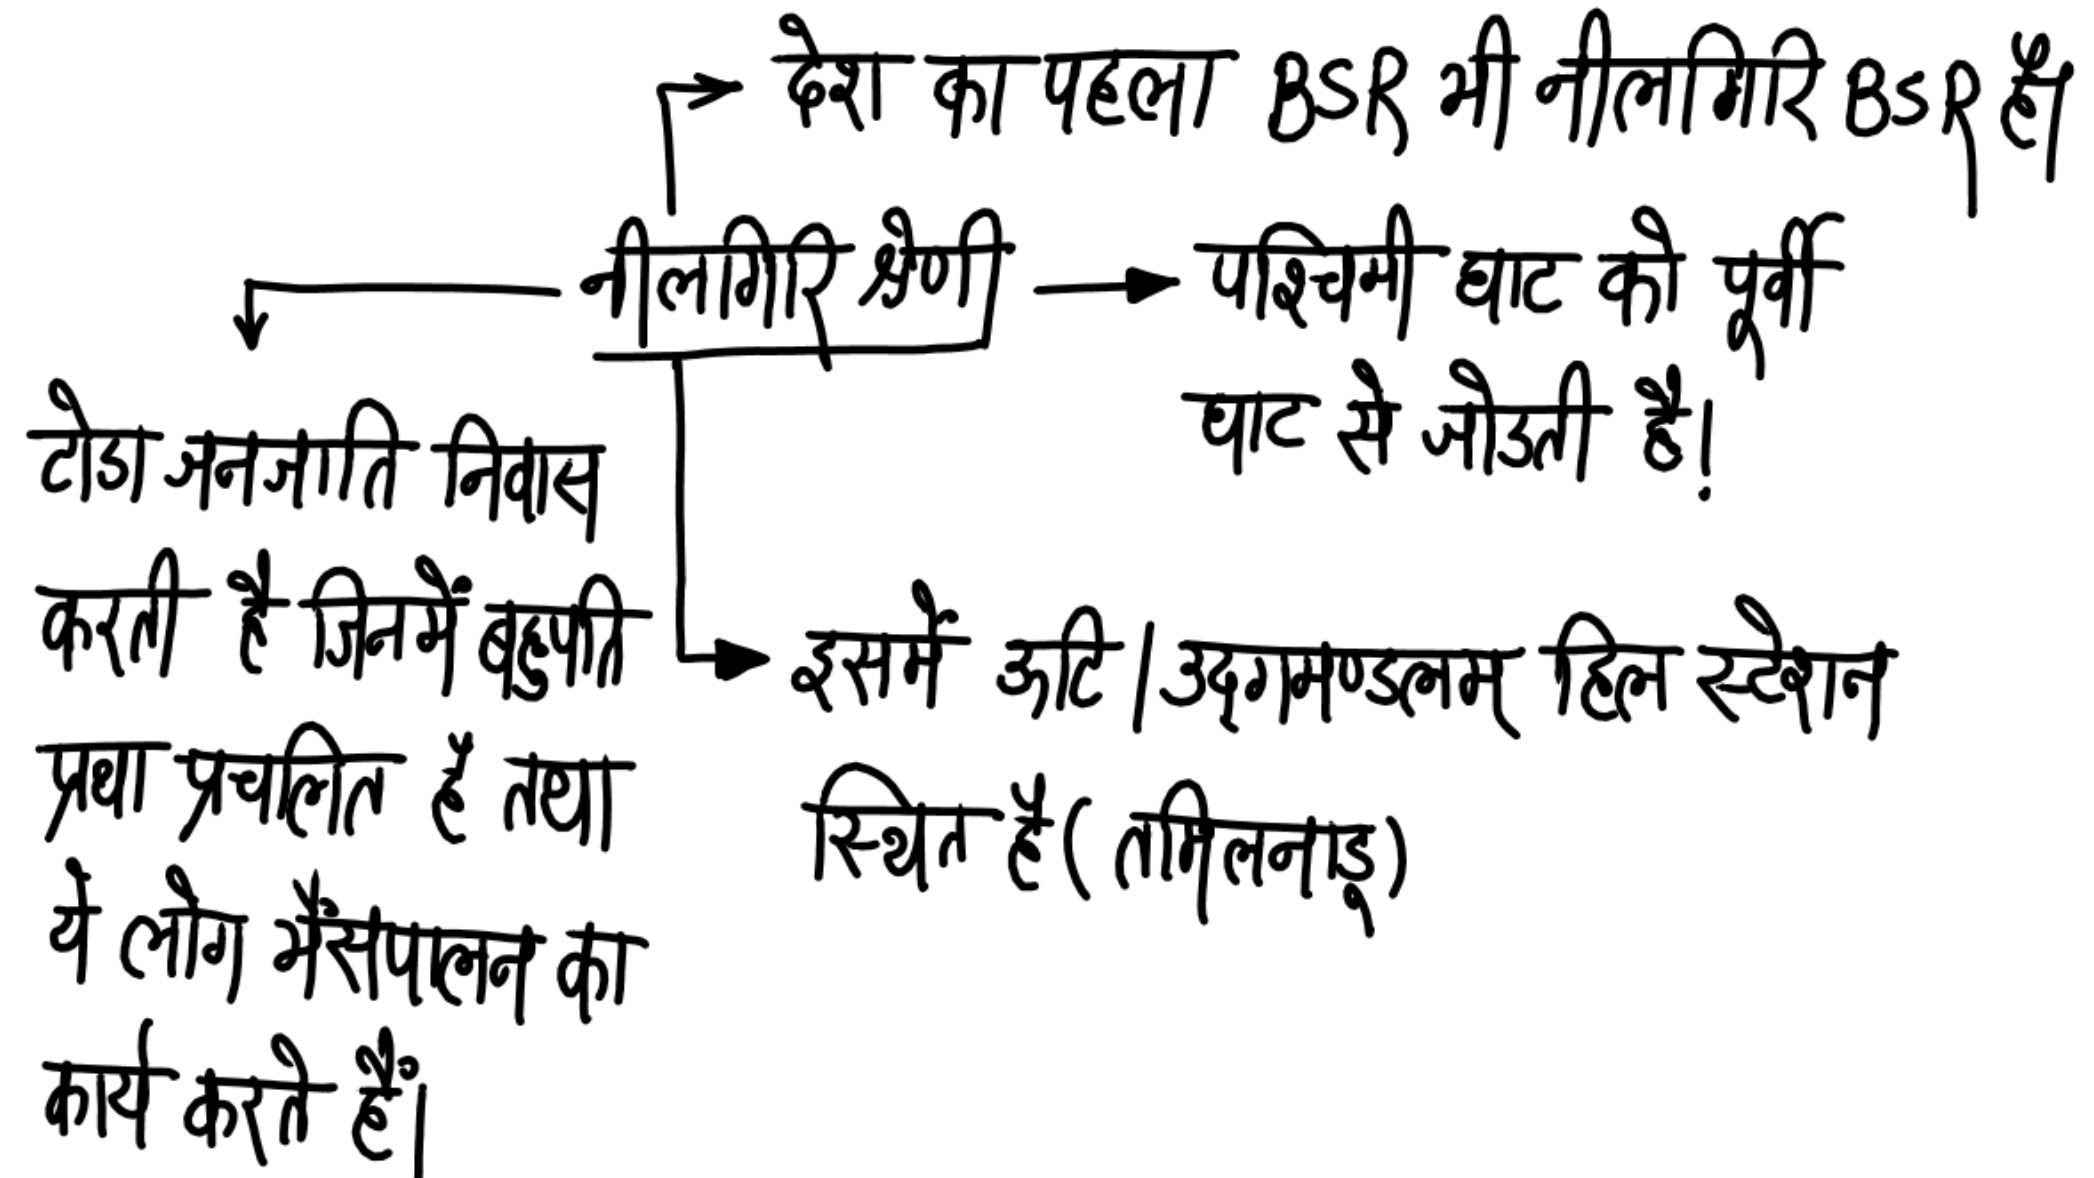 देश का पहला BSR भी नीलगिरि BSR है।
नीलगिरि श्रेणी
पश्चिमी घाट को पूर्वी
घाट से जोडती है।
टोडा जनजाति निवास
करती है जिनमें बहुपति
प्रथा प्रचलित है तथा
ये लोग भैंसपालन का
कार्य करते हैं।
इसमें ऊटि/उद्गमण्डलम् हिल स्टेशन
स्थित है (तमिलनाडू)